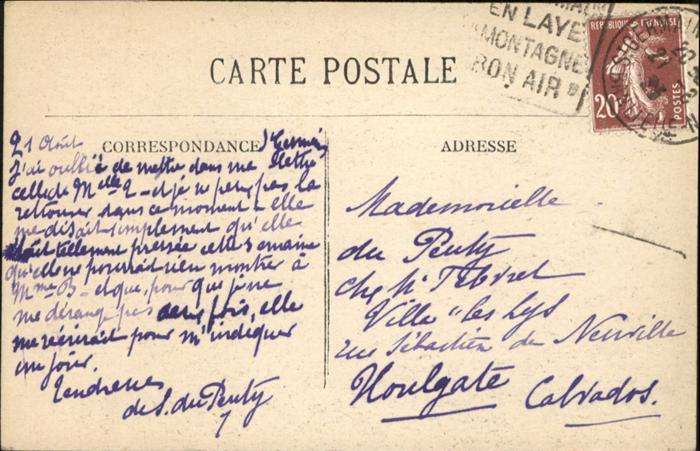 EN LAYE
"MONTAGNE
BON AIR"
REPUBLIQUE FRANÇAISE
20c
POSTES
CARTE POSTALE
CORRESPONDANCE
21 Août St Germain
J'ai oublié de mettre dans ma lettre
celle de Melle L - et je ne peux pas la
retrouver dans ce moment - elle
me disait simplement qu'elle
était tellement pressée cette semaine
qu'elle ne pourrait rien montrer à
Mme B - et que, pour que je ne
me dérange pas deux fois, elle
me récrirait pour m'indiquer
un jour.
Tendresses
de S. du Peuty
ADRESSE
Mademoiselle
du Peuty
chez Mr
Villa "les Lys
rue Sébastien de Neuville
Houlgate
Calvados.